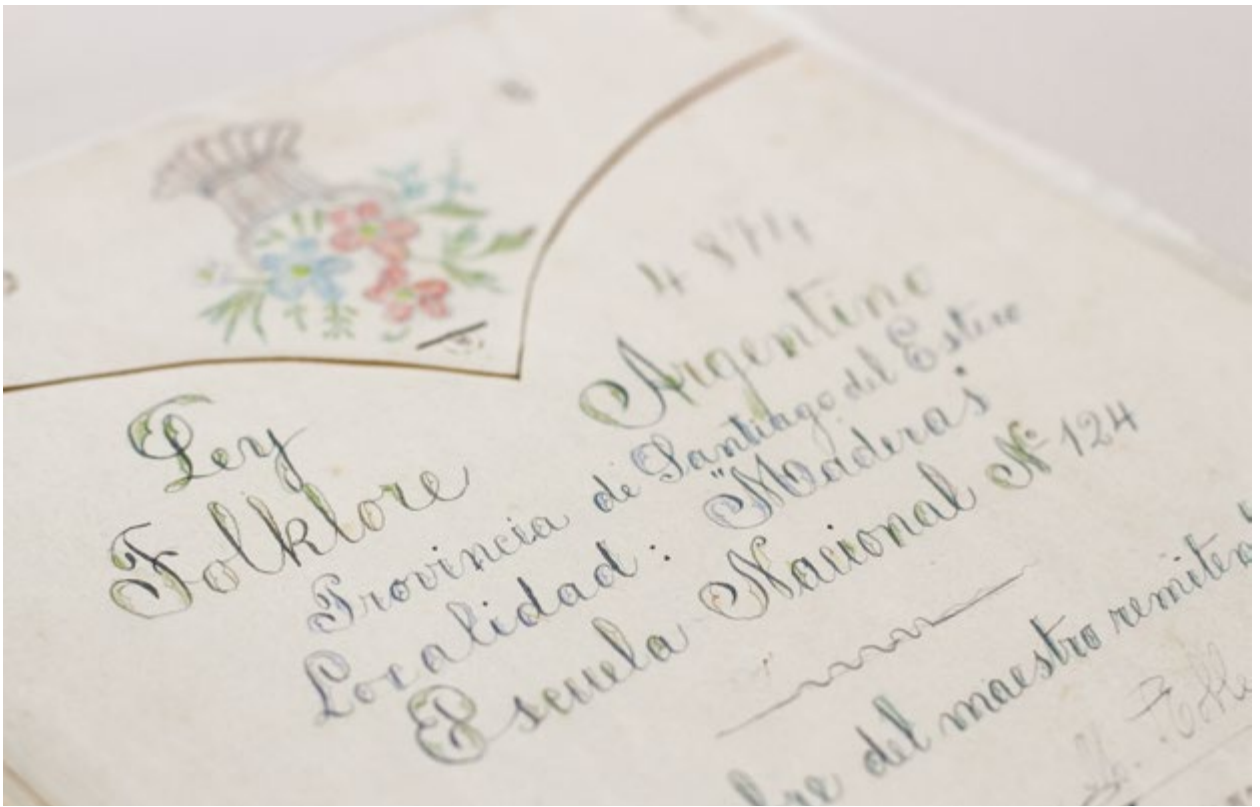 4 874
Ley
Folklore Argentino
Provincia de Santiago del Estero
Localidad: "Maderas"
Escuela Nacional Nº 124
del maestro remitente